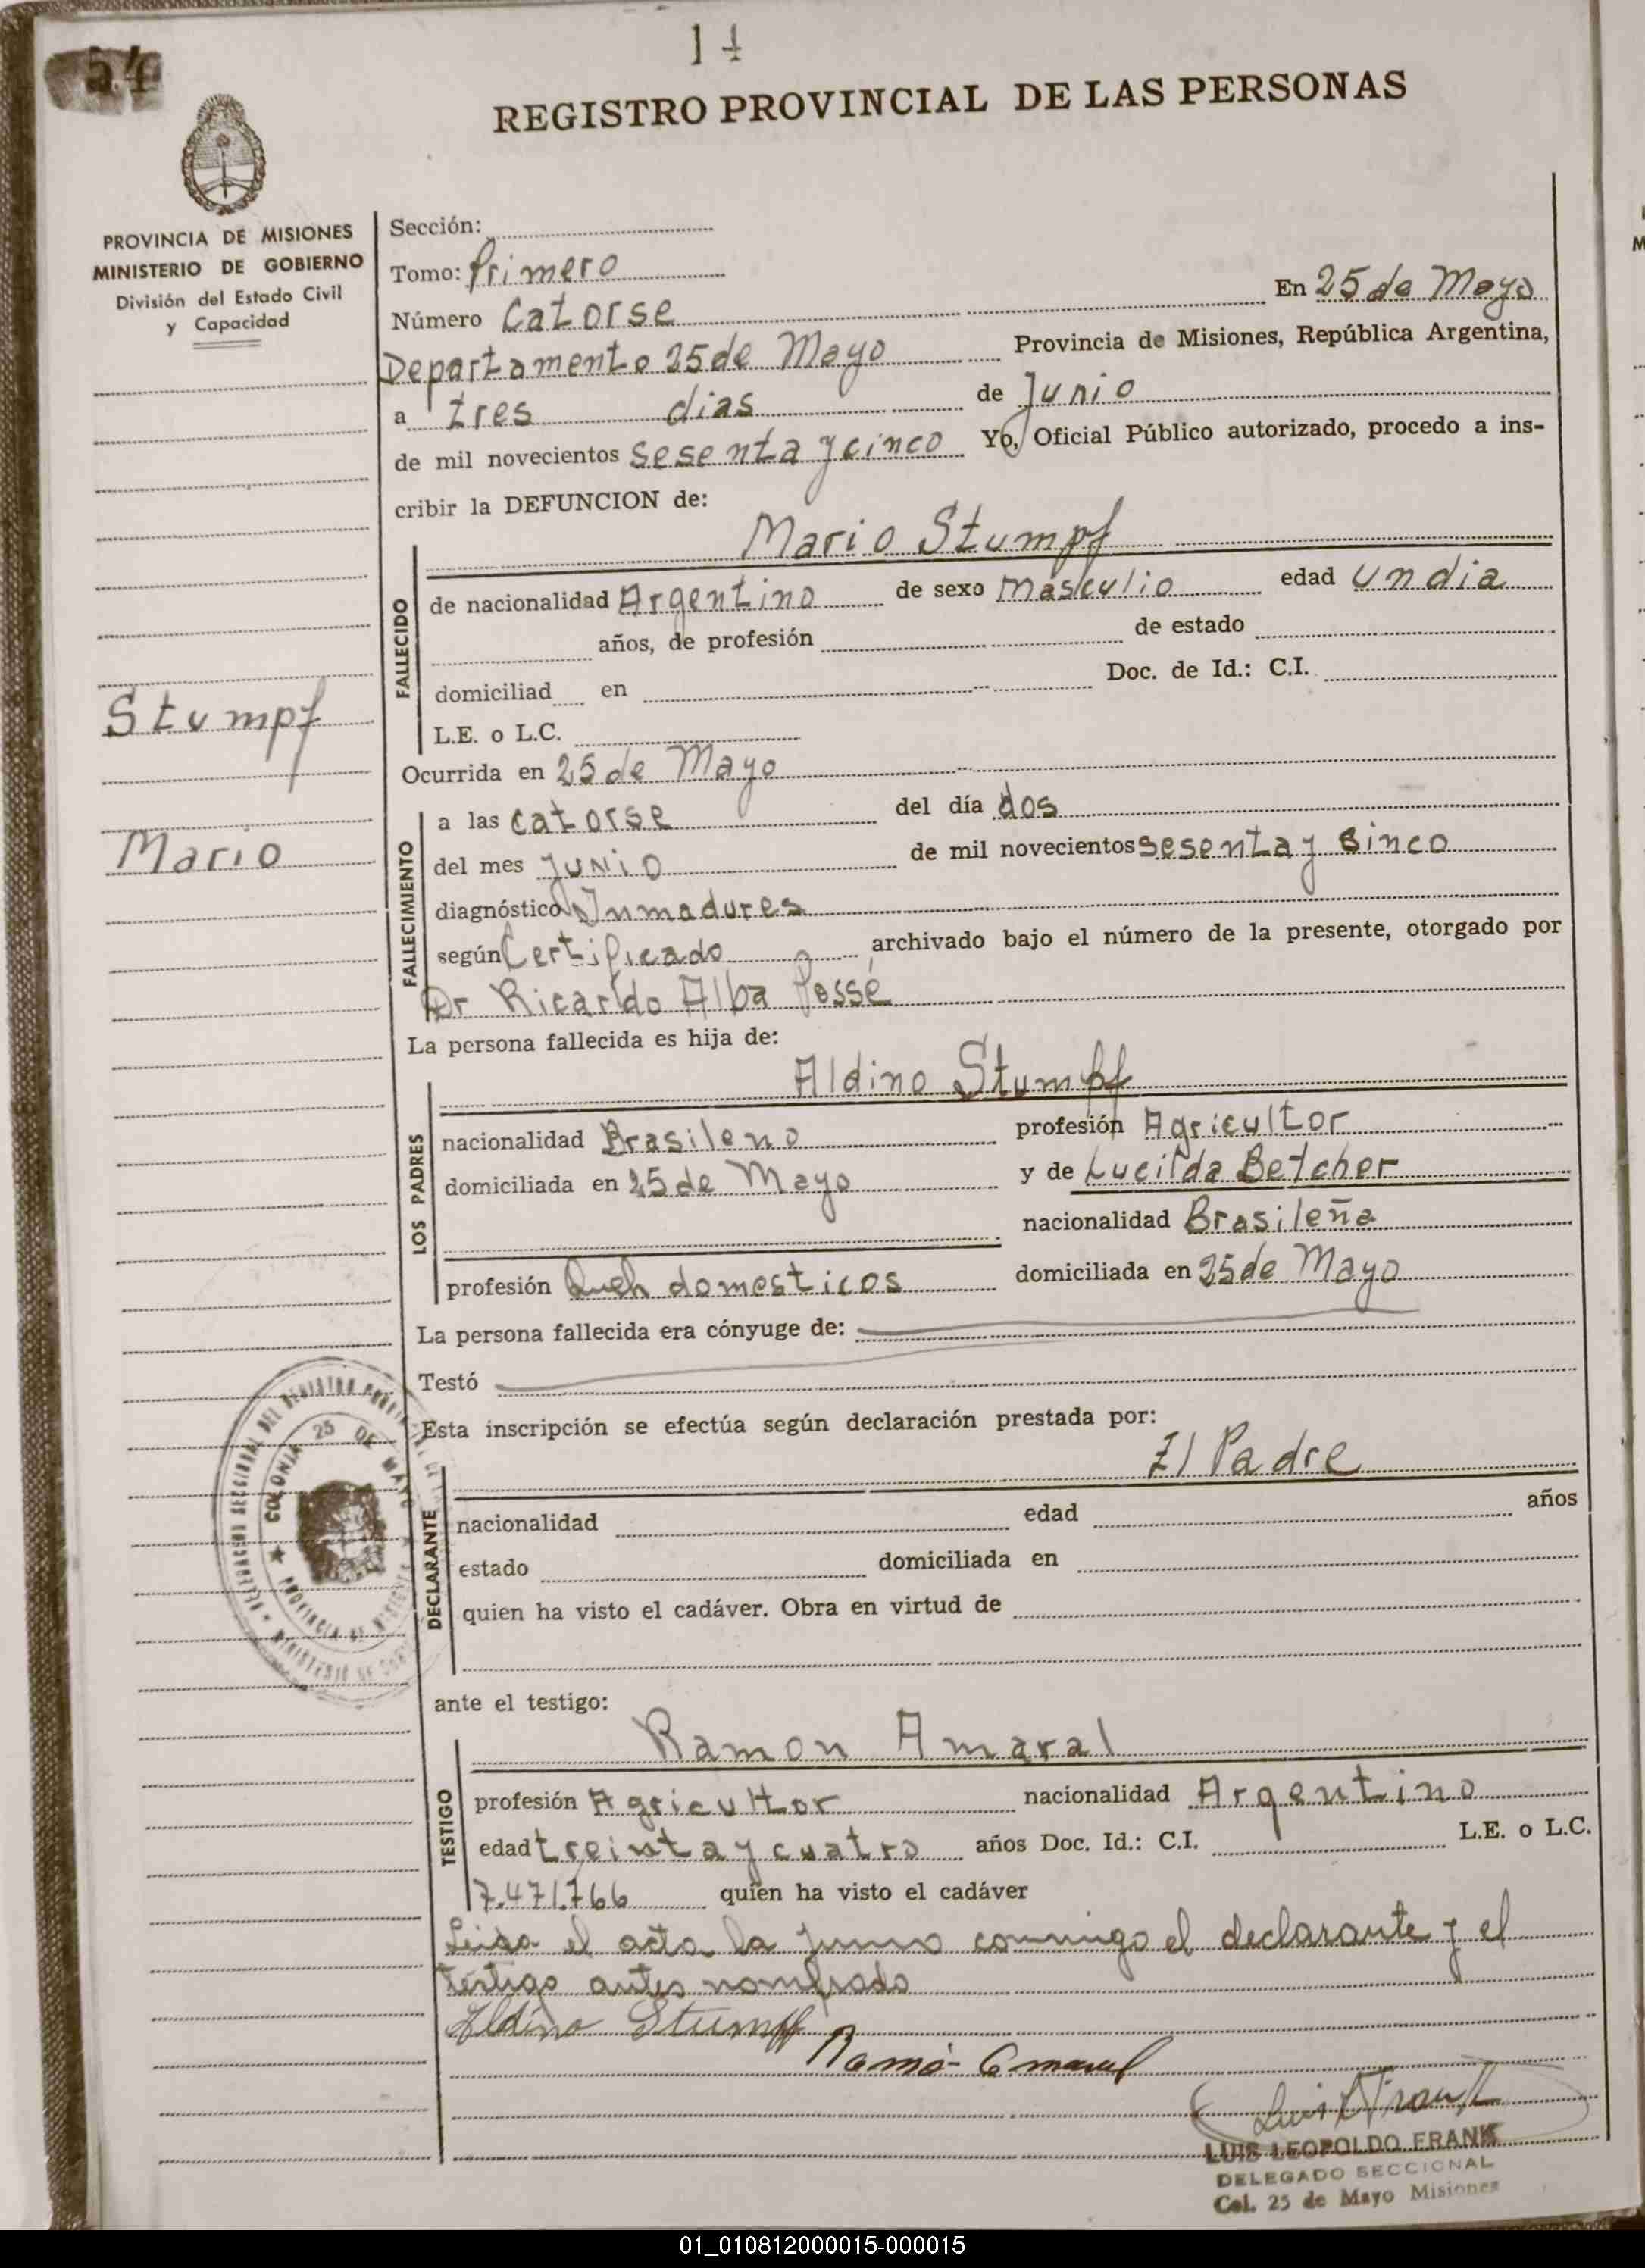 54
14
REGISTRO PROVINCIAL DE LAS PERSONAS
PROVINCIA DE MISIONES
MINISTERIO DE GOBIERNO
División del Estado Civil
y Capacidad
Stumpf
Mario
Sección:
Tomo: Primero
En 25 de Mayo
Número Catorse
Departamento 25 de Mayo Provincia de Misiones, República Argentina,
a tres dias de Junio
de mil novecientos sesenta y cinco Yo, Oficial Público autorizado, procedo a ins-
cribir la DEFUNCION de:
Mario Stumpf
FALLECIDO
de nacionalidad Argentino de sexo Masculio edad un dia
años, de profesión de estado
domiciliad en Doc. de Id.: C.I.
L.E. o L.C.
Ocurrida en 25 de Mayo
FALLECIMIENTO
a las catorse del día dos
del mes Junio de mil novecientos sesenta y sinco
diagnóstico Inmadures
según Certificado archivado bajo el número de la presente, otorgado por
Dr Ricardo Alba Possé
La persona fallecida es hija de:
Aldino Stumpf
LOS PADRES
nacionalidad Brasileno profesión Agricultor
domiciliada en 25 de Mayo y de Lucilda Betcher
nacionalidad Brasileña
profesión Queh domesticos domiciliada en 25 de Mayo
La persona fallecida era cónyuge de:
Testó
Esta inscripción se efectúa según declaración prestada por:
El Padre
DECLARANTE
nacionalidad edad años
estado domiciliada en
quien ha visto el cadáver. Obra en virtud de
COLONIA 25 DE MAYO
PROVINCIA DE MISIONES
ante el testigo:
Ramon Amaral
TESTIGO
profesión Agricultor nacionalidad Argentino
edad treinta y cuatro años Doc. Id.: C.I. L.E. o L.C.
7.471.766 quien ha visto el cadáver
Leida el acta la conmigo el declarante y el
testigo antes nombrado
Aldino Stumpf
LUIS LEOPOLDO FRANK
DELEGADO SECCIONAL
Col. 25 de Mayo Misiones
01_010812000015-000015